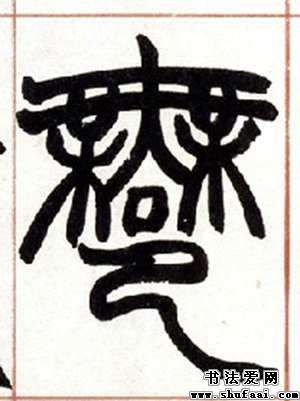 鄦
书法爱网
www.shufaai.com